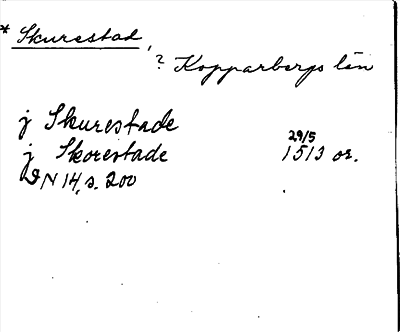 * Skurestad,
? Kopparbergs län
j Skurestade
j Skorestade 29/5 1513 or.
DN 14, s. 200